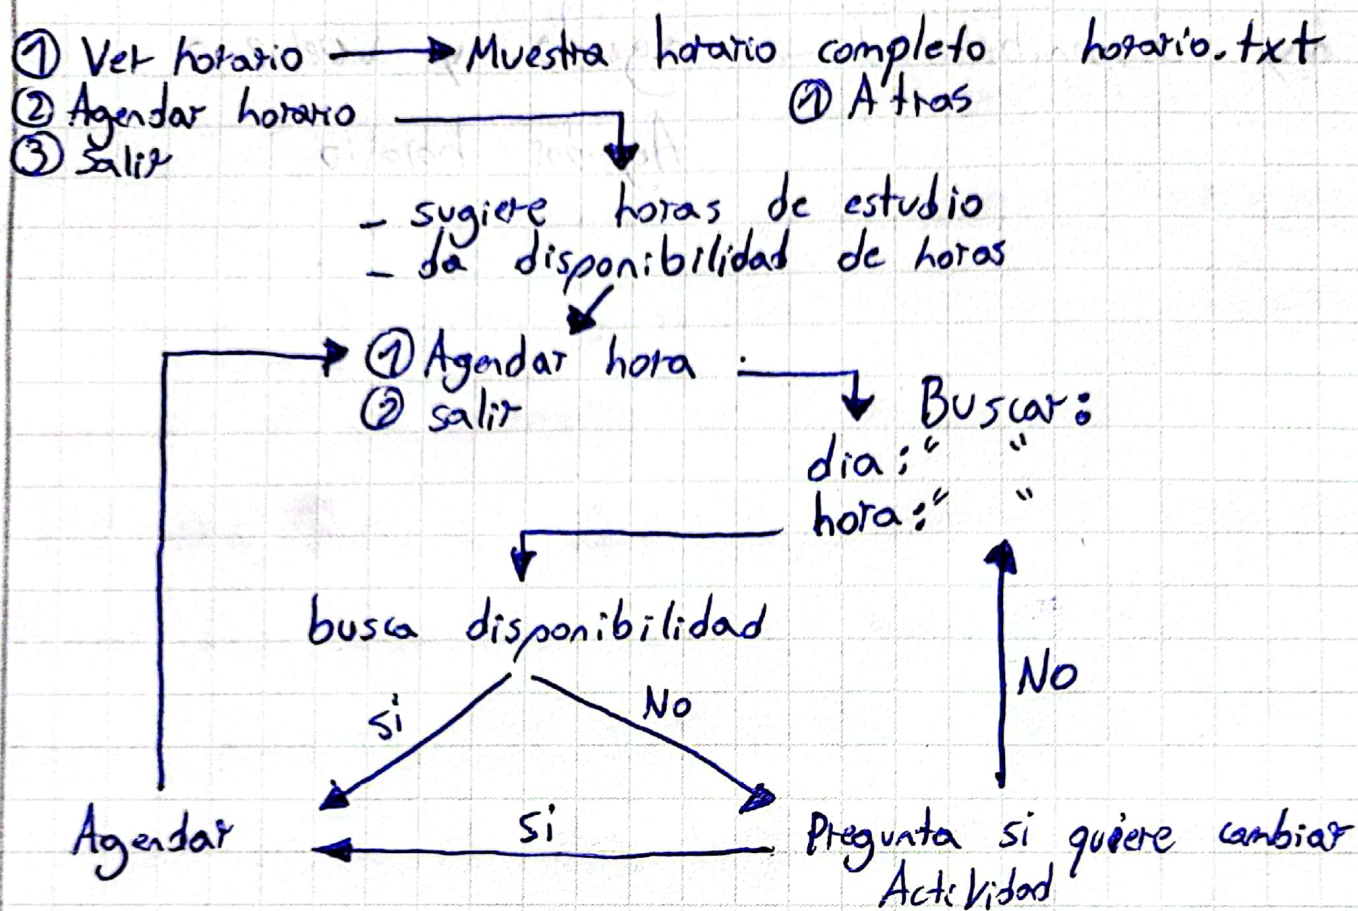 ① Ver horario → Muestra horario completo horario.txt
② Agendar horario ① Atras
③ Salir
- sugiere horas de estudio
- da disponibilidad de horas
① Agendar hora
② salir
Buscar:
dia: " "
hora: " "
busca disponibilidad
Si No
No
Agendar Si Pregunta si quiere cambiar
Actividad